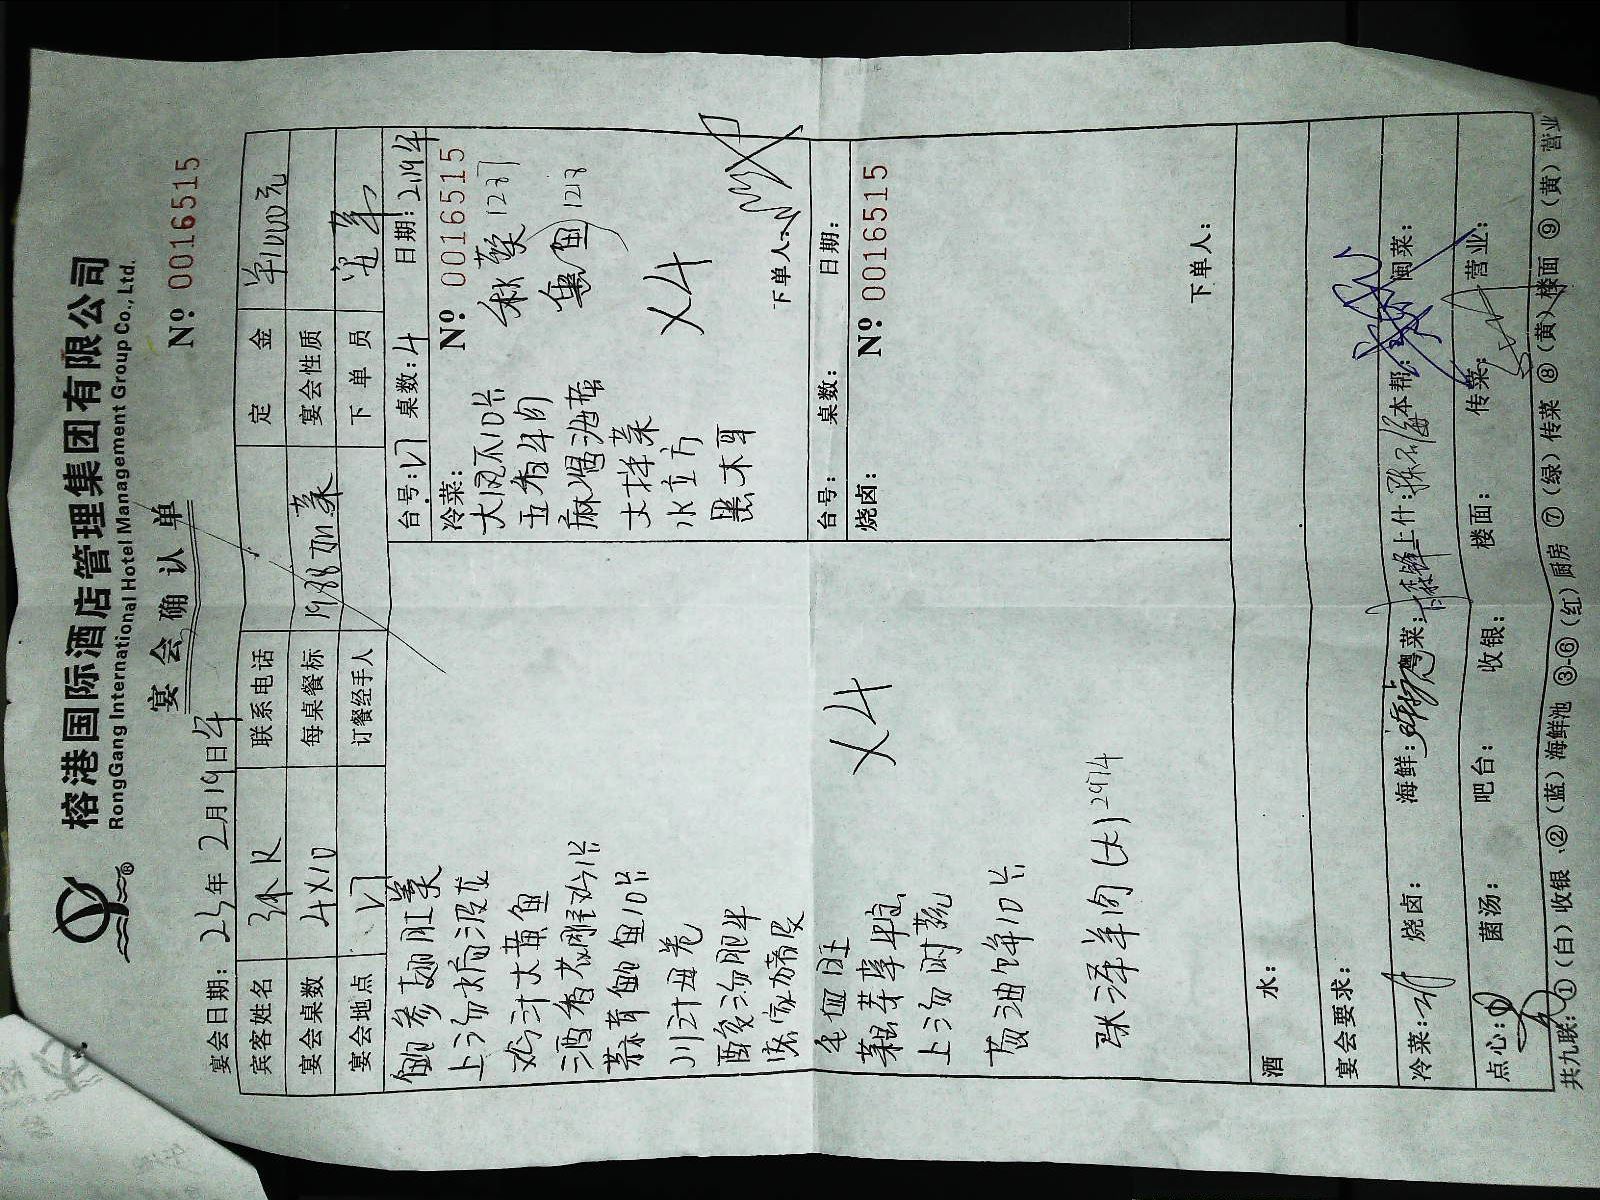 榕港国际酒店管理集团有限公司
RongGang International Hotel Management Group Co., Ltd.
宴会确认单
宴会日期: 23年2月19日午
Nº 0016515
宾客姓名 联系电话 定金 ¥1000元
宴会桌数 4X10 每桌餐标 1988加菜 宴会性质
宴会地点 订餐经手人 下单员
台号: 桌数: 4 日期: 2.19午
冷菜: Nº 0016515
大风不10片
五香牛肉
麻酱海蜇
大拌菜
水立方
黑木耳
X4
下单人:
鲍参翅肚羹
上汤焗波龙
鸡汁大黄鱼
酒香花雕鸡1片
蒜茸鲍鱼10片
川汁丑卷
酸汤肥牛
农家猪皮
毛血旺
上汤时蔬
X4
葱油饼10片
(大) 2914
台号: 桌数: 日期:
烧卤: Nº 0016515
下单人:
酒水:
宴会要求:
冷菜: 烧卤: 海鲜: 粤菜: 上什: 本帮: 闽菜:
点心: 菌汤: 吧台: 收银: 楼面: 传菜: 营业:
共九联: ①(白)收银 ②(蓝)海鲜池 ③-⑥(红)厨房 ⑦(绿)传菜 ⑧(黄)楼面 ⑨(黄)营业